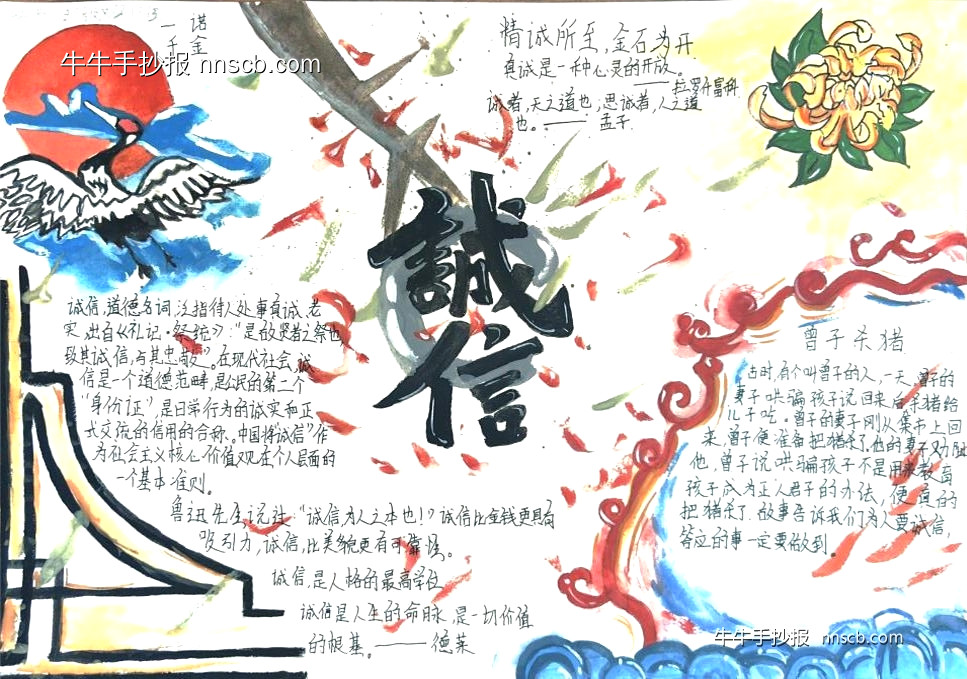 一诺
千金
牛牛手抄报 nnscb.com
精诚所至，金石为开
真诚是一种心灵的开放。
——拉罗什富科
诚者，天之道也；思诚者，人之道
也。—— 孟子
誠
信
诚信，道德名词，泛指待人处事真诚、老
实，出自《礼记·祭统》："是故贤者之祭也
致其诚信，与其忠敬"。在现代社会，诚
信是一个道德范畴，是公民的第二个
"身份证"，是日常行为的诚实和正
式交流的信用的合称。中国将诚信"作
为社会主义核心价值观在个人层面的
一个基本准则。
鲁迅先生说过："诚信为人之本也!》诚信比金钱更具有
吸引力，诚信，比美貌更有可靠性。
诚信，是人格的最高学位
诚信是人生的命脉，是一切价值
的根基。——德莱
曾子杀猪
古时，有个叫曾子的人，一天，曾子的
妻子哄骗孩子说回来后杀猪给
儿子吃。曾子的妻子刚从集市上回
来，曾子便准备把猪杀了。他的妻子劝阻
他，曾子说哄骗孩子不是用来教育
孩子成为正人君子的办法，便真的
把猪杀了。故事告诉我们为人要诚信，
答应的事一定要做到。
牛牛手抄报 nnscb.com